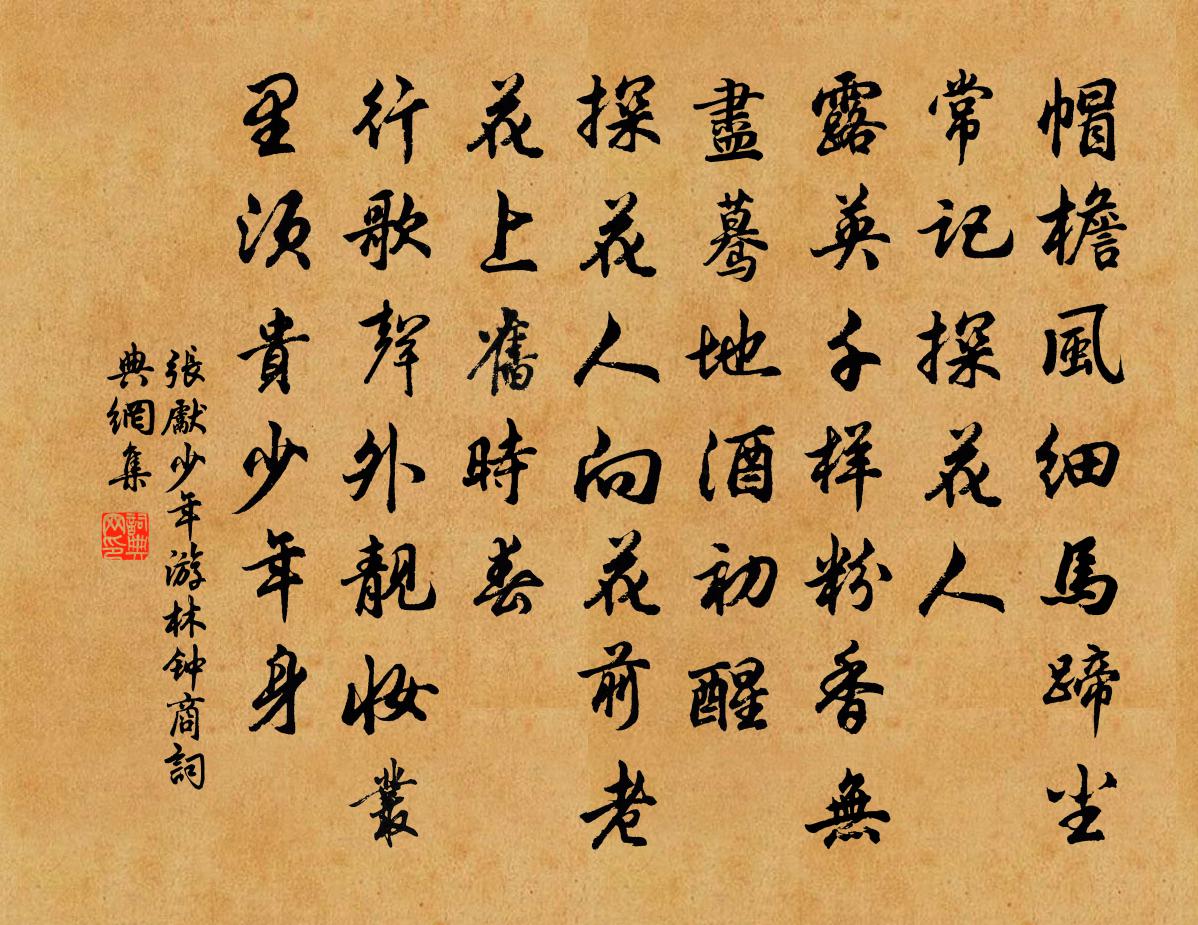 帽檐風細馬蹄尘
常记探花人
露英千样粉香無
盡驀地酒初醒
探花人向花前老
花上舊時春
行歌聲外靚妝叢
里须貴少年身
張獻少年游林钟商詞
典網集
詞典
网印